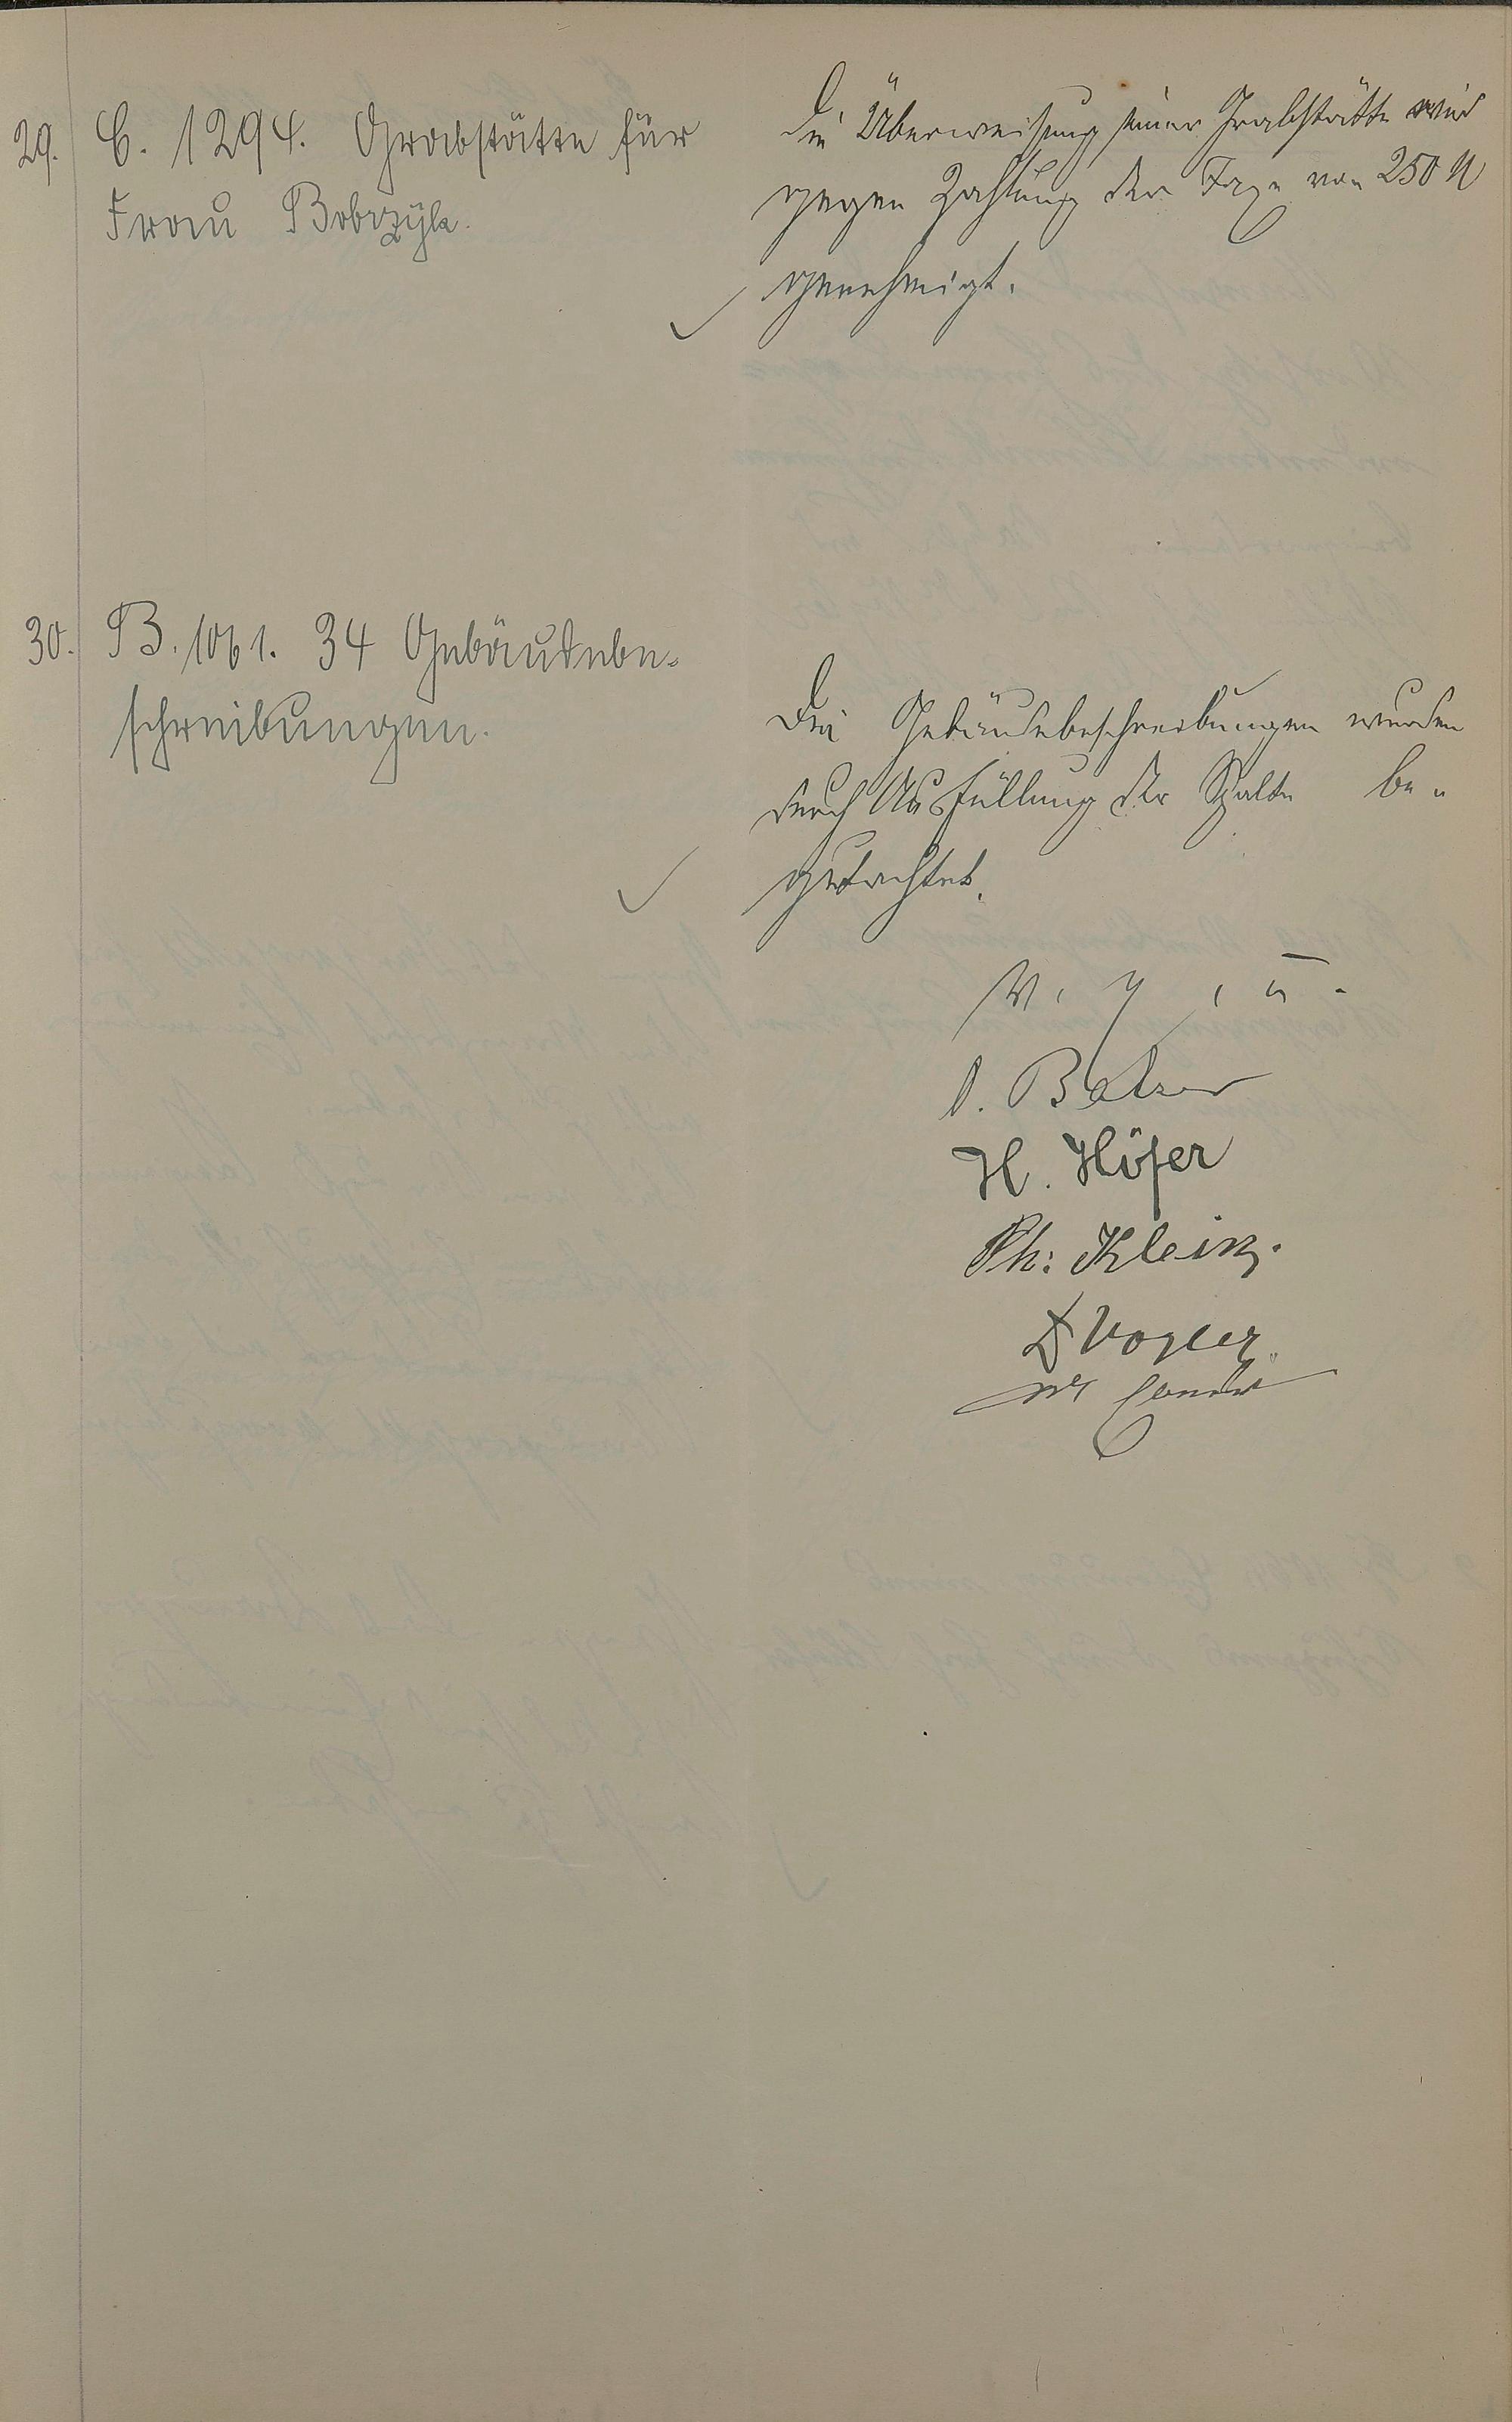 29. C. 1294. Grabstätte für
Frau Bobrzyk.
Die Überweisung einer Grabstätte wird
gegen Zahlung der Taxe von 250 M
genehmigt.
30. B. 1061. 34 Gebäudebe-
schreibungen.
Die Gebäudebeschreibungen wurden
durch Ausfüllung der Spalte be-
gutachtet.
v. g. u.
Balzer
H. Höfer
Ph: Klein.
D Vogler